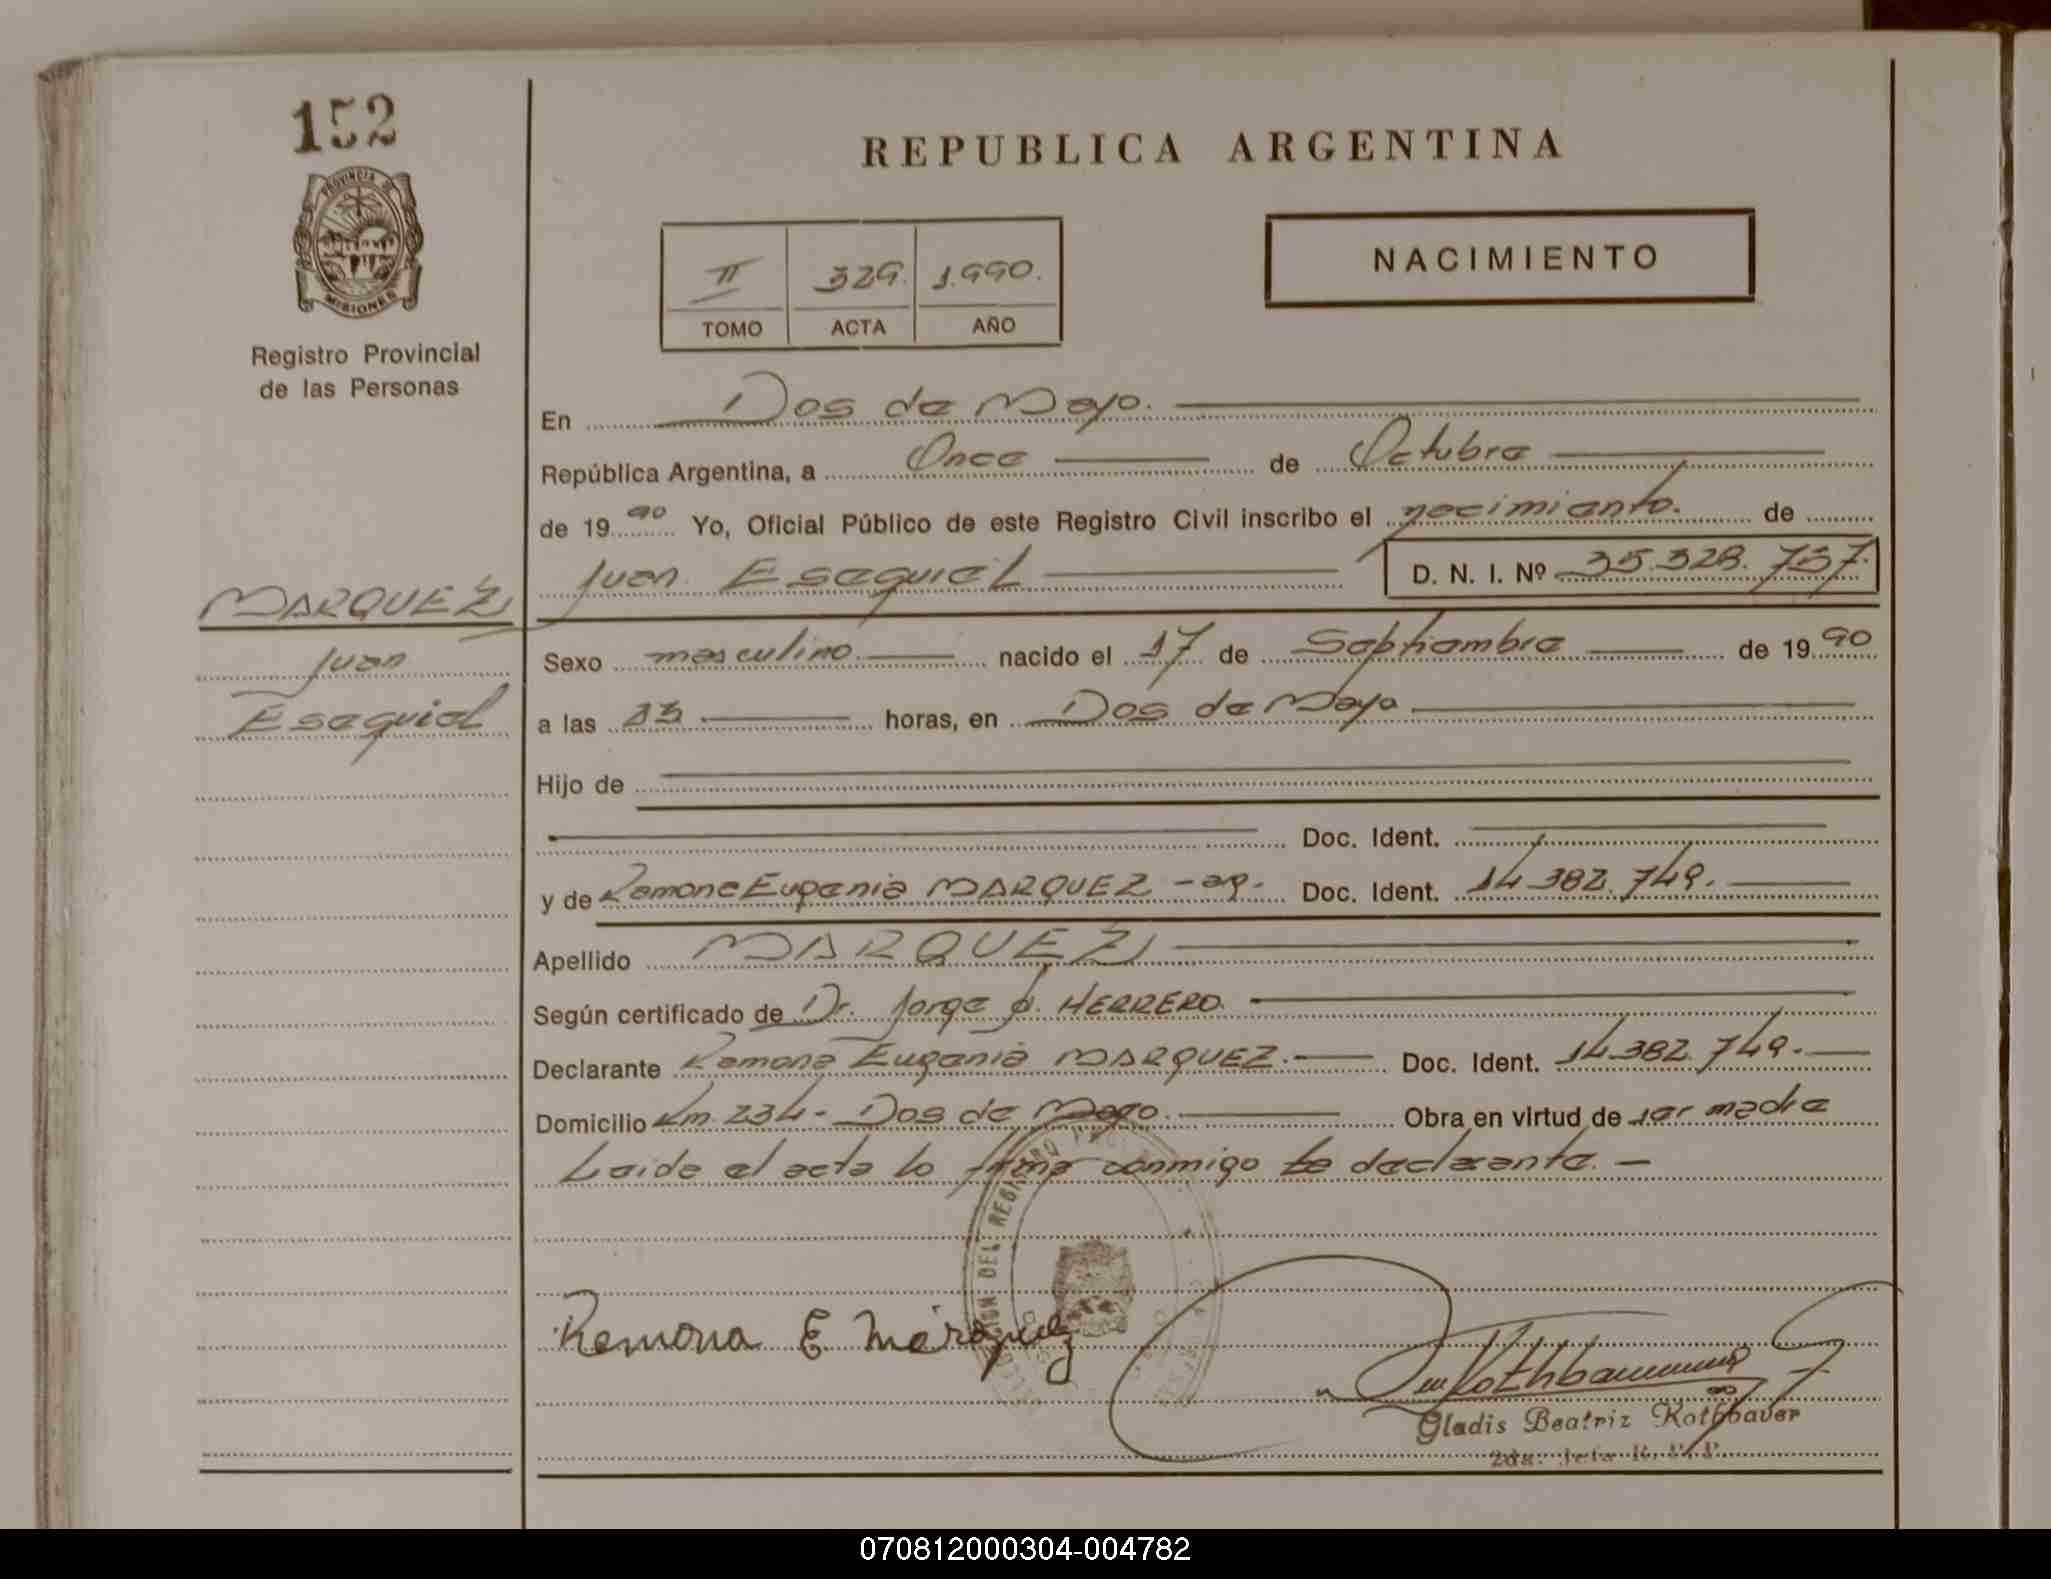 152
PROVINCIA DE
MISIONES
Registro Provincial
de las Personas
REPUBLICA ARGENTINA
NACIMIENTO
II 329. 1.990.
TOMO ACTA AÑO
En Dos de Mayo.
República Argentina, a Once de Octubre
de 1990 Yo, Oficial Público de este Registro Civil inscribo el nacimiento. de
Juan Esequiel D. N. I. Nº 35.328.737.
MARQUEZ
Juan
Esequiel
Sexo masculino nacido el 17 de Septiembre de 1990
a las 23 horas, en Dos de Mayo
Hijo de
Doc. Ident.
y de Ramona Eugenia MARQUEZ -ar- Doc. Ident. 14.382.749.
Apellido MARQUEZ
Según certificado de Dr. Jorge J. HERRERO.
Declarante Ramona Eugenia MARQUEZ.- Doc. Ident. 14.382.749.-
Domicilio Km. 234- Dos de Mayo. Obra en virtud de ser madre
Leida el acta lo firma conmigo la declarante. -
DEL REGISTRO
Ramona E Márquez
Gladis Beatriz Rothbauer
2da. Jefa R. P. P.
070812000304-004782